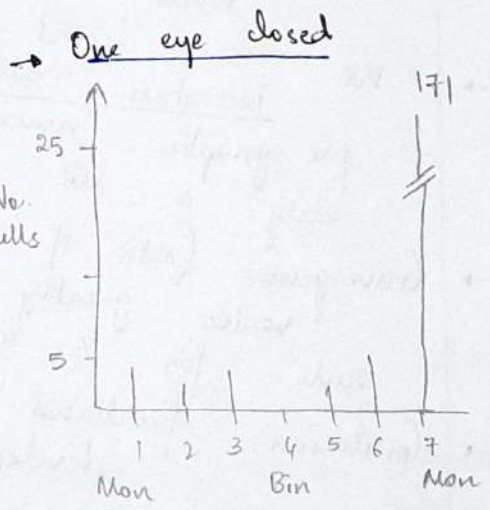 → One eye closed
171
25
No.
cells
5
1 2 3 4 5 6 7
Mon Bin Mon